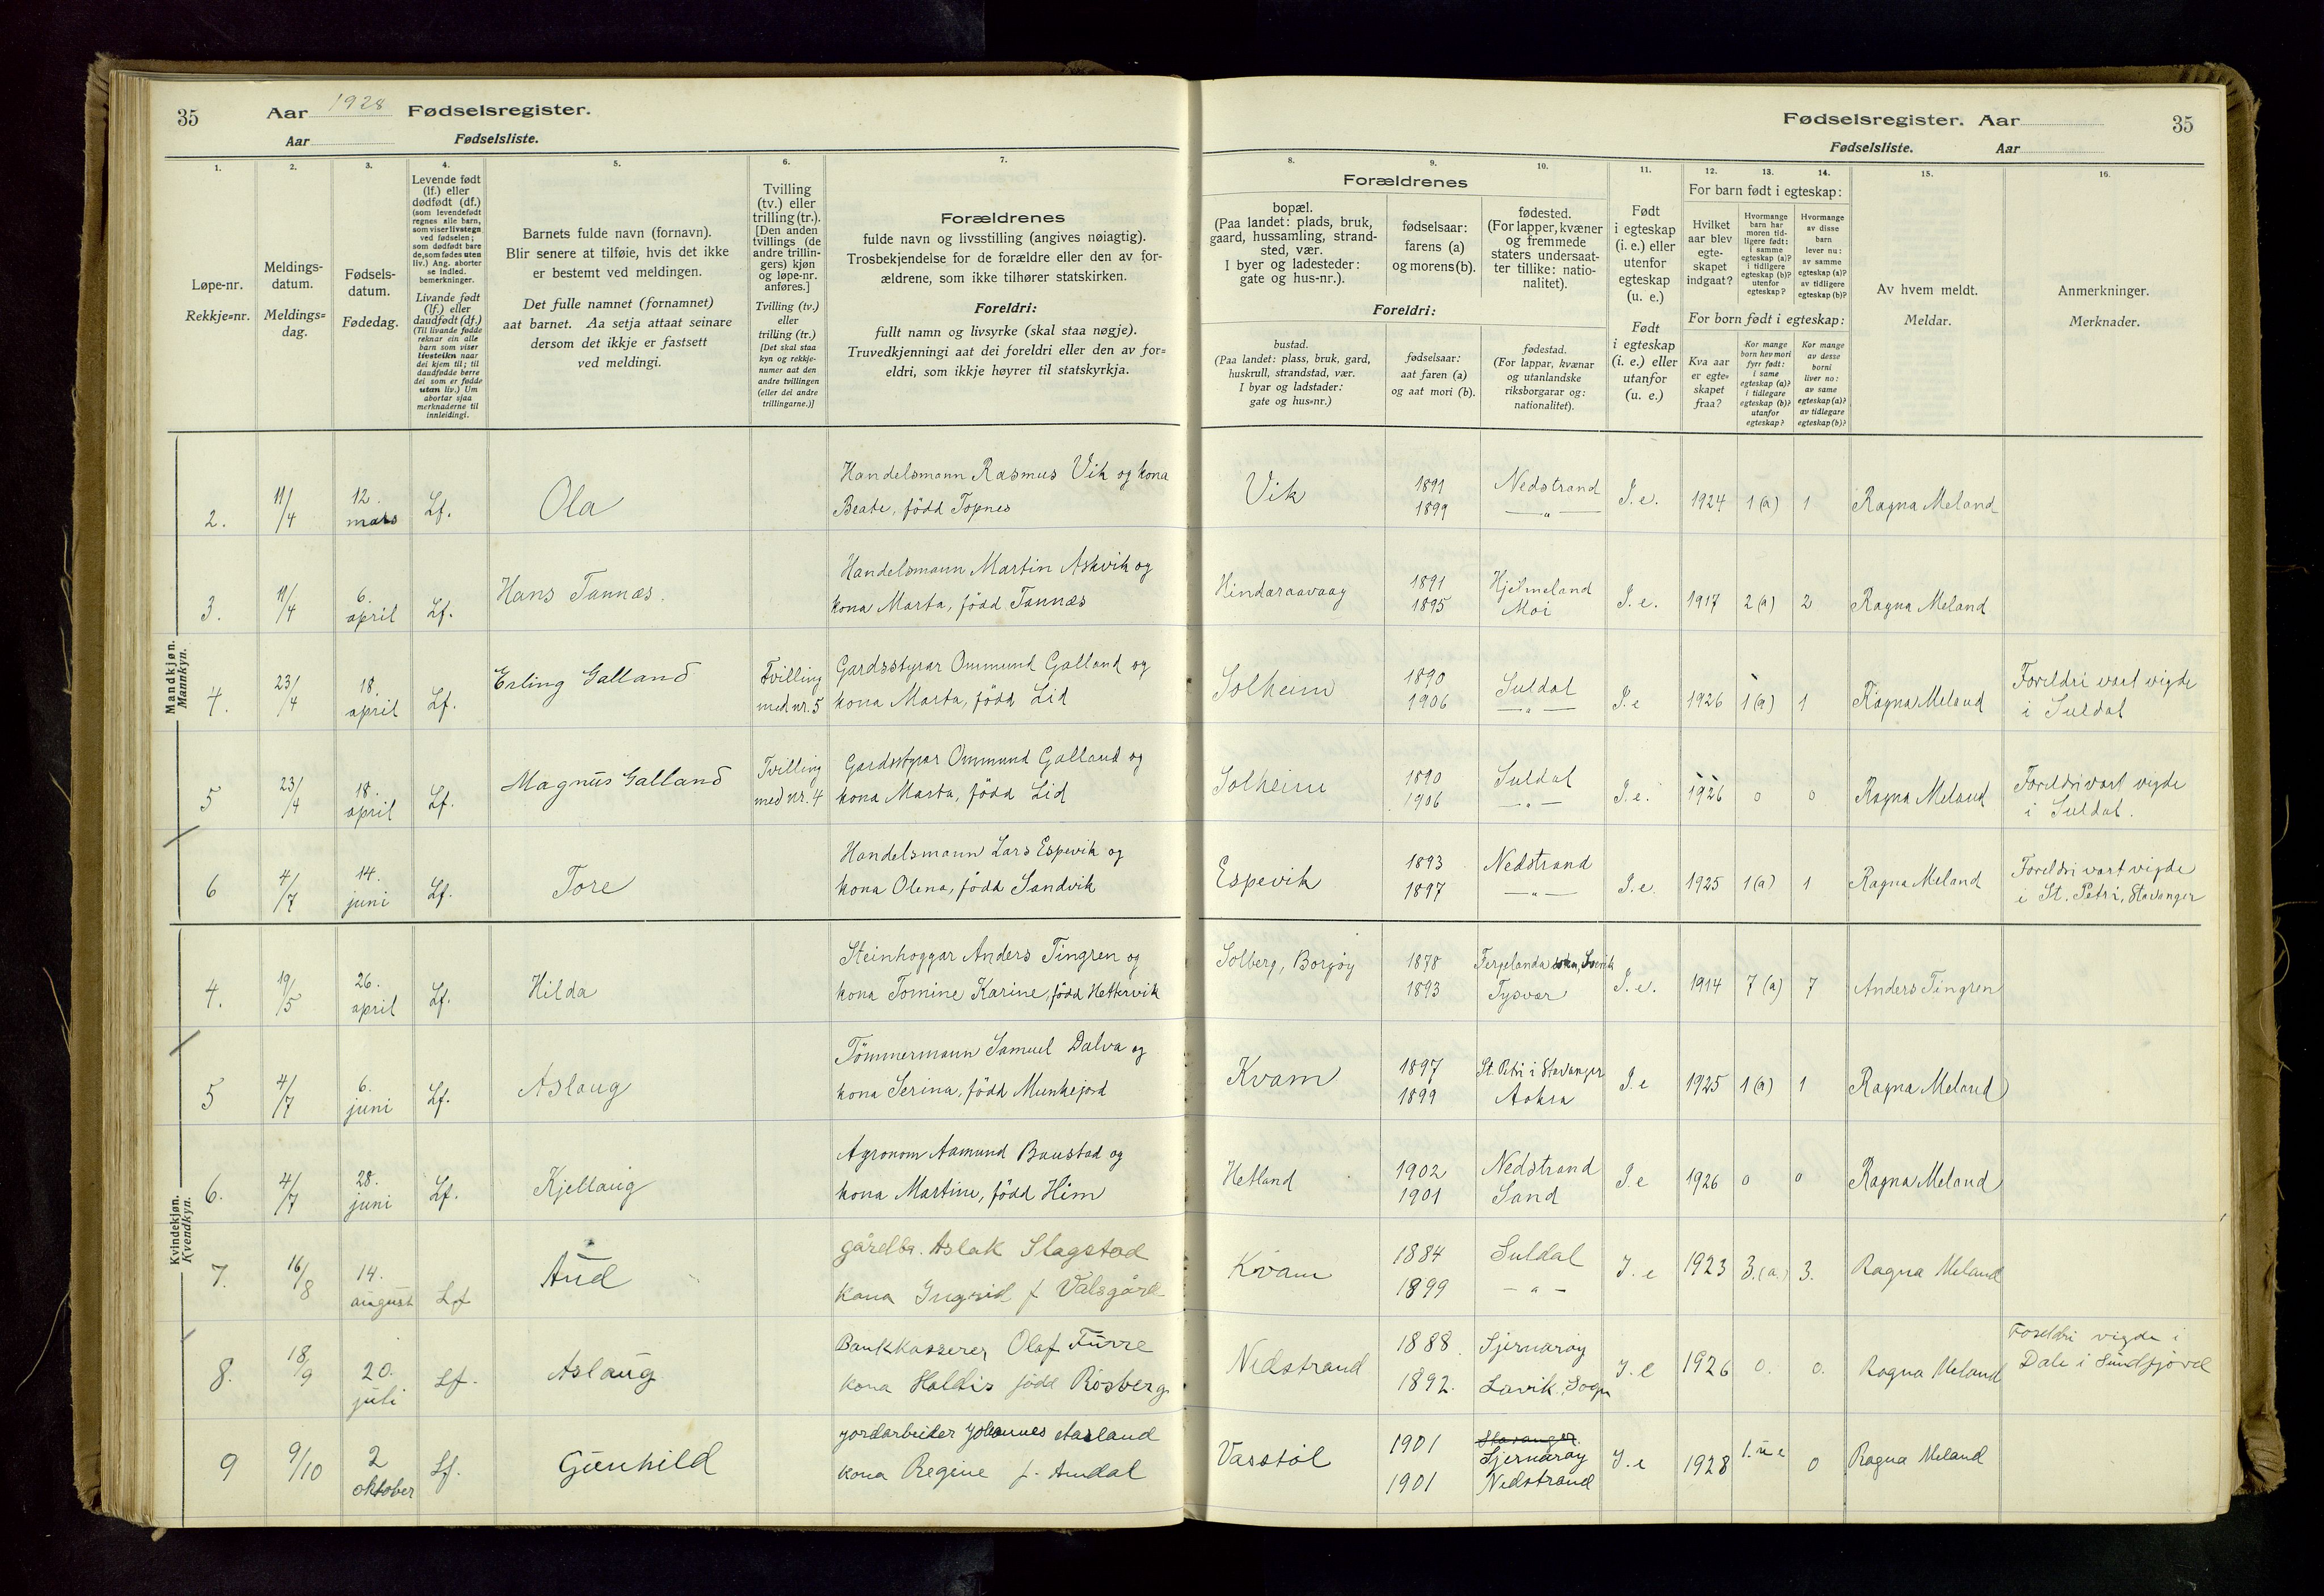 35 Aar 1928 Fødselsregister.
Aar Fødselsliste.
Fødselsregister. Aar 35
Fødselsliste. Aar
1. 2. 3. 4. 5. 6. 7. 8. 9. 10. 11. 12. 13. 14. 15. 16.
Løpe-nr.
Rekkje=nr.
Meldings-
datum.
Meldings=
dag.
Fødsels-
datum.
Fødedag.
Levende født
(lf.) eller
dødfødt (df.)
(som levendefødt
regnes alle barn,
som viser livstegn
ved fødselen;
som dødfødt bare
de, som fødes uten
liv.) Ang. aborter
se indled.
bemerkninger.
Livande født
(lf.) eller
daudfødt (df.)
(Til livande fødde
reknar ein alle
barn som viser
livsteikn naar
dei kjem til; til
daudfødde berre
dei som er fødde
utan liv.) Um
abortar sjaa
merknaderne til
innleidingi.
Barnets fulde navn (fornavn).
Blir senere at tilføie, hvis det ikke
er bestemt ved meldingen.
Det fulle namnet (fornamnet)
aat barnet. Aa setja attaat seinare
dersom det ikkje er fastsett
ved meldingi.
Tvilling
(tv.) eller
trilling (tr.).
[Den anden
tvillings (de
andre trillin-
gers) kjøn
og løpe-nr.
anføres.]
Tvilling (tv.)
eller
trilling (tr.)
[Det skal staa
kyn og rekkje-
numer aat den
andre tvillingen
(eller dei andre
trillingarne.)]
Forældrenes
fulde navn og livsstilling (angives nøiagtig).
Trosbekjendelse for de forældre eller den av for-
ældrene, som ikke tilhører statskirken.
Foreldri:
fullt namn og livsyrke (skal staa nøgje).
Truvedkjenningi aat dei foreldri eller den av for=
eldri, som ikkje høyrer til statskyrkja.
Forældrenes
bopæl.
(Paa landet: plads, bruk,
gaard, hussamling, strand-
sted, vær.
I byer og ladesteder:
gate og hus-nr.).
fødselsaar:
farens (a)
og morens (b).
fødested.
(For lapper, kvæner
og fremmede
staters undersaat-
ter tillike: natio-
nalitet).
Foreldri:
bustad.
(Paa landet: plass, bruk, gard,
huskrull, strandstad, vær.
I byar og ladstader:
gate og hus=nr.)
fødselsaar:
aat faren (a)
og aat mori (b).
fødestad.
(For lappar, kvænar
og utanlandske
riksborgarar og:
nationalitet).
Født
i egteskap
(i. e.) eller
utenfor
egteskap
(u. e.)
Født
i egteskap
(i. e.) eller
utanfor
(u. e.)
For barn født i egteskap:
Hvilket
aar blev
egte-
skapet
indgaat?
Hvormange
barn har
moren tid-
ligere født:
i samme
egteskap (a)?
i tidligere
egteskap (b)?
utenfor
egteskap?
Hvormange
av disse
barn
lever nu:
av samme
egteskap (a)?
av tidligere
egteskap (b)?
For born født i egteskap:
Kva aar
er egte=
skapet
fraa?
Kor mange
born hev mori
fyrr født:
i same
egteskap (a)?
i tidlegare
egteskap (b)?
utanfor
egteskap?
Kor mange
av desse
borni
liver no:
av same
egteskap (a)?
av tidlegare
egteskap (b)?
Av hvem meldt.
Meldar.
Anmerkninger.
Merknader.
Mandkjøn.
Mannkyn.
2. 11/4 12. mars Lf. Ola Handelsmann Rasmus Vik og kona
Beate, född Topnes Vik 1891 1899 Nedstrand —„— I. e. 1924 1 (a) 1 Ragna Meland
3. 11/4 6. april Lf. Hans Tannæs. Handelsmann Martin Askvik og
kona Marta, född Tannæs Hindaraavaag 1891 1895 Hjelmeland Moi I. e. 1917 2 (a) 2 Ragna Meland
4. 23/4 18. april Lf. Erling Galland Tvilling med nr. 5 Gardsstyrar Ommund Galland og
kona Marta, född Lid Solheim 1890 1906 Suldal —„— I. e 1926 1 (a) 1 Ragna Meland Foreldri vart vigde
i Suldal
5 23/4 18. april Lf. Magnus Galland Tvilling med nr. 4 Gardsstyrar Ommund Galland og
kona Marta, född Lid Solheim 1890 1906 Suldal —„— I. e. 1926 0 0 Ragna Meland Foreldri vart vigde
i Suldal.
6 4/7 14. juni Lf. Tore Handelsmann Lars Espevik og
kona Olena, född Sandvik Espevik 1893 1897 Nedstrand —„— I. e. 1925 1 (a) 1 Ragna Meland Foreldri vart vigde
i St. Petri, Stavanger
Kvindekjøn.
Kvendkyn.
4. 19/5 26. april Lf. Hilda Steinhoggar Anders Tingren og
kona Tomine Karine, född Hettervik Solberg, Borgöy 1878 1893 Tysvær I. e. 1914 7 (a) 7 Anders Tingren
5 4/7 6. juni Lf. Aslaug Tömmermann Samuel Dalva og
kona Serina, född Munkejord Kvam 1897 1899 St. Petri i Stavanger Aakra I. e 1925 1 (a) 1 Ragna Meland
6. 4/7 28. juni Lf. Kjellaug Agronom Aamund Baustad og
kona Martine, född Hiim Hetland 1902 1901 Nedstrand Sand I. e 1926 0 0 Ragna Meland
7. 16/8 14. august Lf Aud gårdbr. Aslak Slagstad
kona Ingrid f Valsgård Kvam 1884 1899 Suldal — „ — I. e 1923 3. (a.) 3. Ragna Meland
8. 18/9 20. juli Lf. Aslaug Bankkasserer Olaf Furre
kona Haldis född Rosberg Nedstrand 1888. 1892. Sjernarøy Lavik, Sogn I. e 1926 0. 0. Ragna Meland Foreldri vigde i
Dale i Sundfjord
9 9/10 2 oktober Lf. Gunhild jordarbeider Johannes Aasland
kona Regine f. Amdal Vasstøl 1901 1901 Stavanger. Sjernarøy Nedstrand I. e 1928 1. u e 0 Ragna Meland